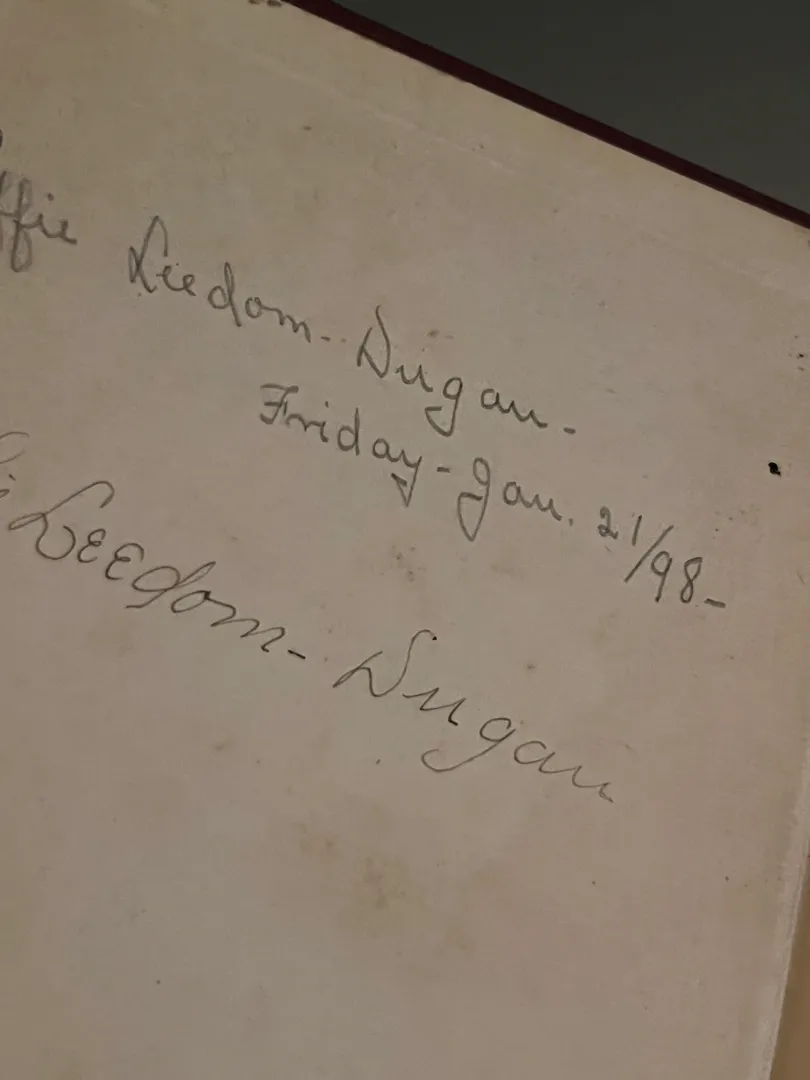 Leedom-Dugan-
Friday-Jan. 21/98-
Leedom-Dugan